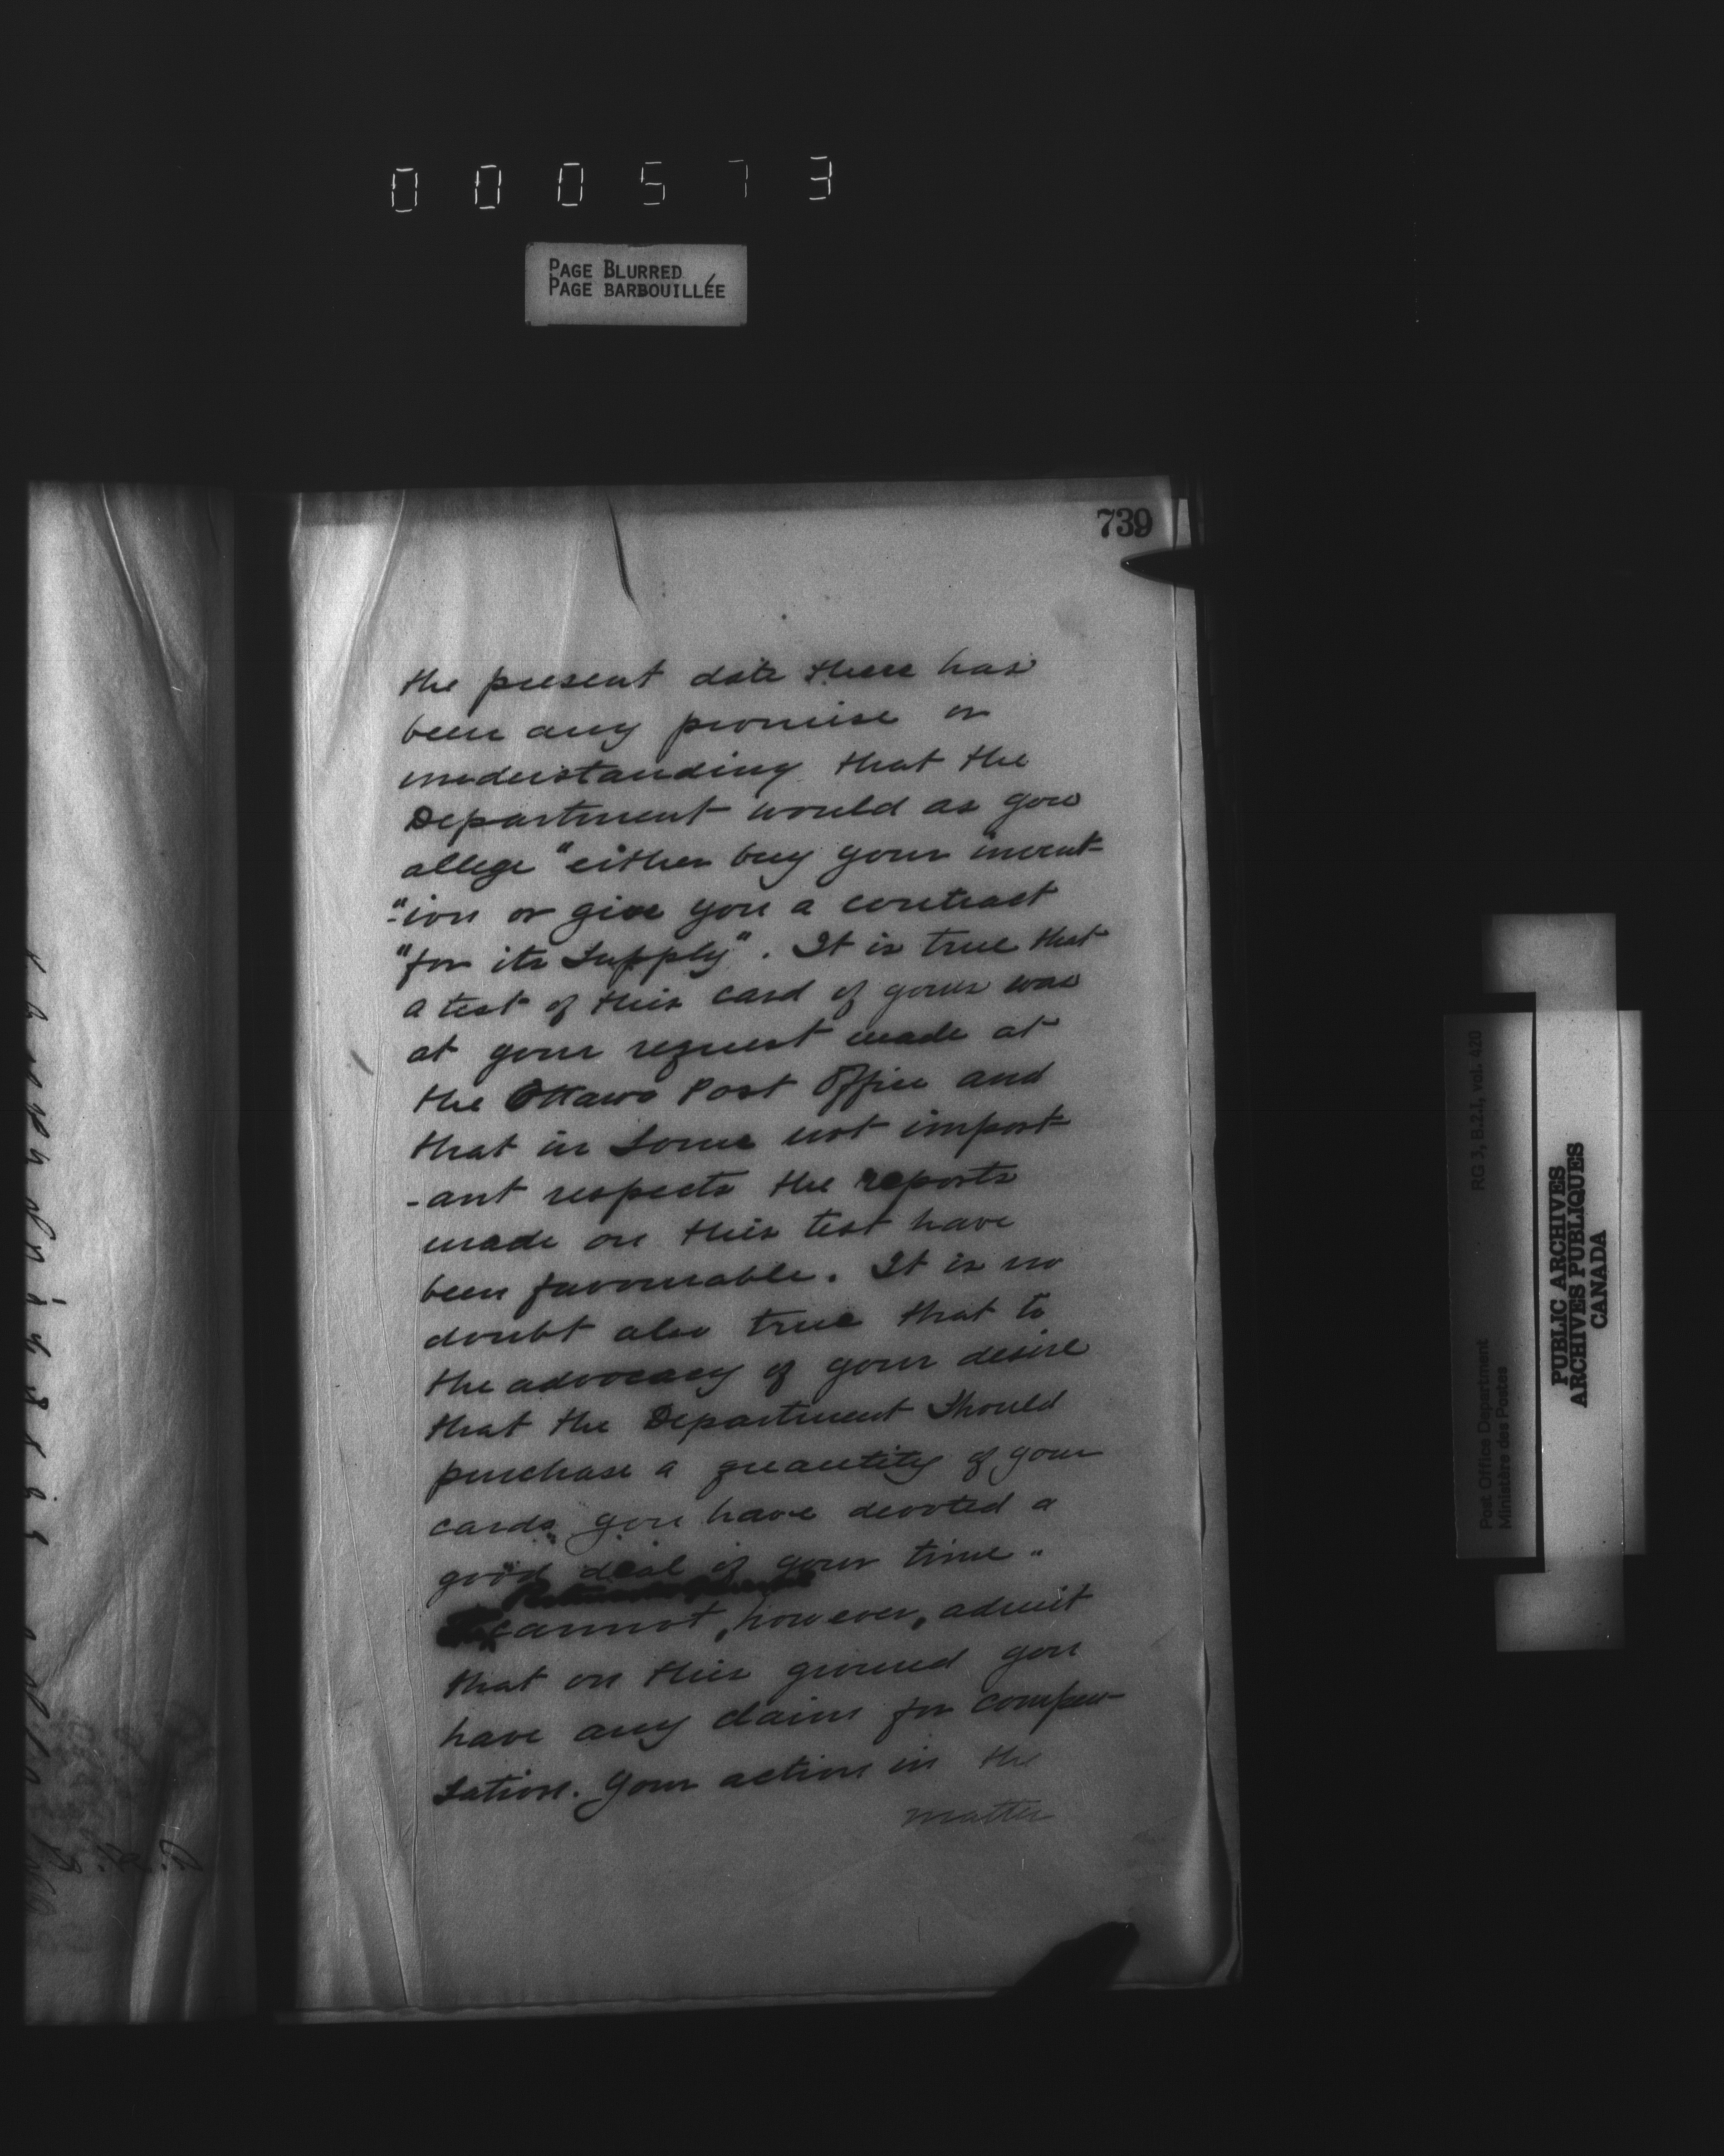 000573
PAGE BLURRED
PAGE BARBOUILLÉE
739
the present date there has
been any promise or
understanding that the
Department would as you
allege "either buy your invent-
"-ion or give you a contract
"for its supply". It is true that
a test of this card of yours was
at your request made at
the Ottawa Post Office and
that in some not import
-ant respects the reports
made on this test have
been favourable. It is no
doubt also true that to
the advocacy of your desire
that the Department should
purchase a quantity of your
cards you have devoted a
good deal of your time.
cannot, however, admit
that on this ground you
have any claim for compen-
sation. Your action in the
matter
RG 3, B.2.1, vol. 420
Post Office Department
Ministère des Postes
PUBLIC ARCHIVES
ARCHIVES PUBLIQUES
CANADA